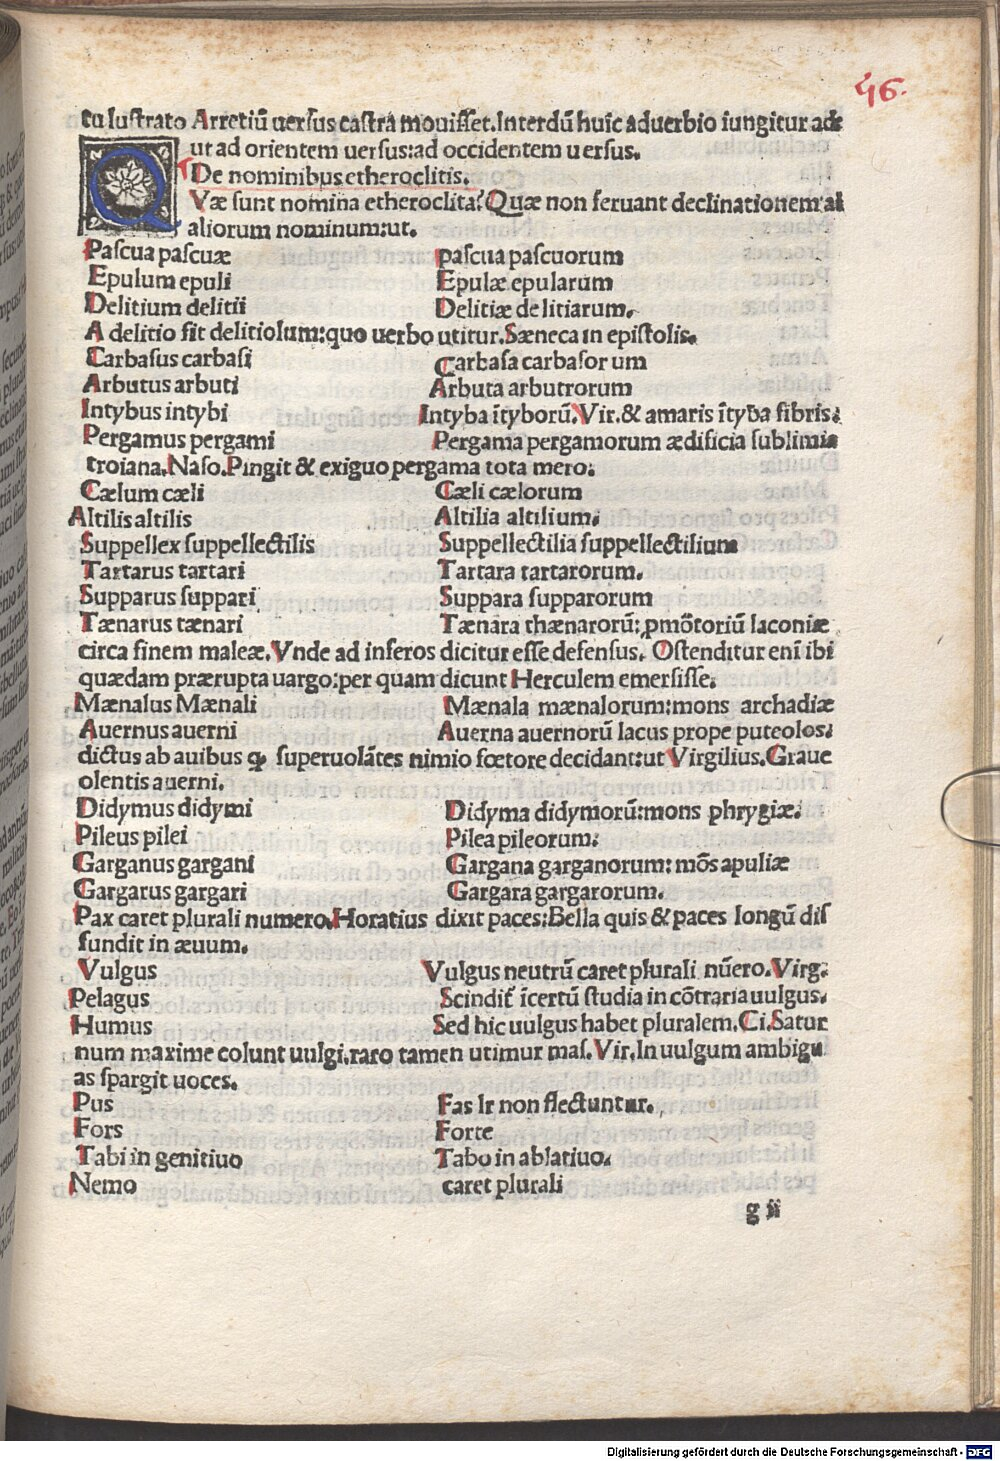 46.
tu lustrato Arretiū uersus castra mouisset. Interdū huic aduerbio iungitur ad:
ut ad orientem uersus: ad occidentem uersus.
De nominibus etheroclitis.
QVæ sunt nomina etheroclita? Quæ non seruant declinationem al
aliorum nominum: ut.
Pascua pascuæ pascua pascuorum
Epulum epuli Epulæ epularum
Delitium delitii Delitiæ delitiarum.
A delitio fit delitiolum: quo uerbo utitur. Sæneca in epistolis.
Carbasus carbasi Carbasa carbasorum
Arbutus arbuti Arbuta arbutrorum
Intybus intybi Intyba ītyborū. Vir. & amaris ītyba fibris.
Pergamus pergami Pergama pergamorum ædificia sublimia
troiana. Naso. Pingit & exiguo pergama tota mero:
Cælum cæli Cæli cælorum
Altilis altilis Altilia altilium.
Suppellex suppellectilis Suppellectilia suppellectilium
Tartarus tartari Tartara tartarorum.
Supparus suppari Suppara supparorum
Tænarus tænari Tænara thænarorū: ꝓmōtoriū laconiæ
circa finem maleæ. Vnde ad inferos dicitur esse defensus. Ostenditur enī ibi
quædam prærupta uargo: per quam dicunt Herculem emersisse.
Mænalus Mænali Mænala mænalorum: mons archadiæ
Auernus auerni Auerna auernorū lacus prope puteolos:
dictus ab auibus ꝙ superuolātes nimio fœtore decidant: ut Virgilius. Graue
olentis auerni.
Didymus didymi Didyma didymorū: mons phrygiæ:
Pileus pilei Pilea pileorum:
Garganus gargani Gargana garganorum: mōs apuliæ
Gargarus gargari Gargara gargarorum.
Pax caret plurali numero. Horatius dixit paces: Bella quis & paces longū dif
fundit in æuum.
Vulgus Vulgus neutrū caret plurali nūero. Virg:
Pelagus Scindit̄ īcertū studia in cōtraria uulgus.
Humus Sed hic uulgus habet pluralem. Ci. Satur
num maxime colunt uulgi. raro tamen utimur mas. Vir. In uulgum ambigu
as spargit uoces.
Pus Fas Ir non flectuntur.
Fors Forte
Tabi in genitiuo Tabo in ablatiuo.
Nemo caret plurali
g ii
Digitalisierung gefördert durch die Deutsche Forschungsgemeinschaft - DFG